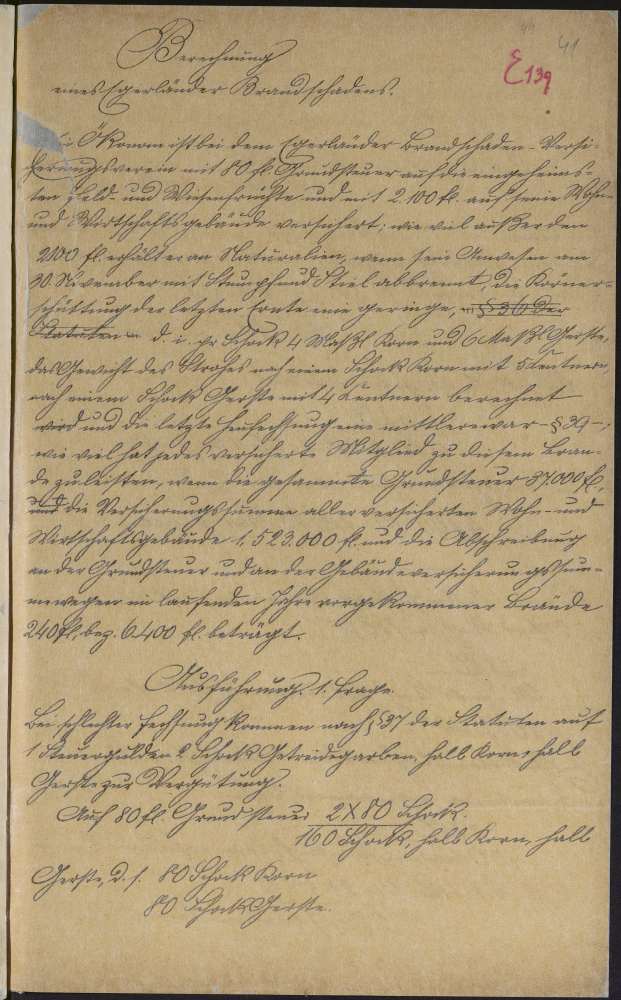 41
E 139
Berechnung
eines Egerländer Brandschadens.
Ökonom ist bei dem Egerländer Brandschaden-Versi-
cherungsverein mit 80 fl. Grundsteuer auf die eingeheims-
ten Feld- und Wiesenfrüchte und mit 2.100 fl. auf seine Wohn-
und Wirtschaftsgebäude versichert; wie viel außer den
2100 fl. erhält er an Naturalien, wenn sein Anwesen am
30. November mit Stumpf und Stiel abbrennt, die Körner-
schüttung der letzten Ernte eine geringe, § 36 der
Statuten d. i. pr Schock 4 Maßl Korn und 6 Maßl Gerste,
das Gewicht des Strohes nach einem Schock Korn mit 5 Zentnern,
nach einem Schock Gerste mit 4 Zentnern berechnet
wird und die letzte Heufechsung eine mittlere war - § 39 -;
wie viel hat jedes versicherte Mitglied zu diesem Bran-
de zu leisten, wenn die gesammte Grundsteuer 37.000 fl.,
und die Versicherungssumme aller versicherten Wohn- und
Wirtschaftsgebäude 1,523.000 fl. und die Abschreibung
an der Grundsteuer und an der Gebäudeversicherungssum-
me wegen im laufenden Jahre vorgekommener Brände
240 fl., bez. 6.400 fl. beträgt.
Ausführung. 1. Frage.
Bei schlechter Fechsung kommen nach § 37 der Statuten auf
1 Steuergulden 2 Schock Getreidegarben, halb Korn, halb
Gerste zur Vergütung.
Auf 80 fl. Grundsteuer 2 X 80 Schock.
160 Schock, halb Korn, halb
Gerste, d. s. 80 Schock Korn
80 Schock Gerste.